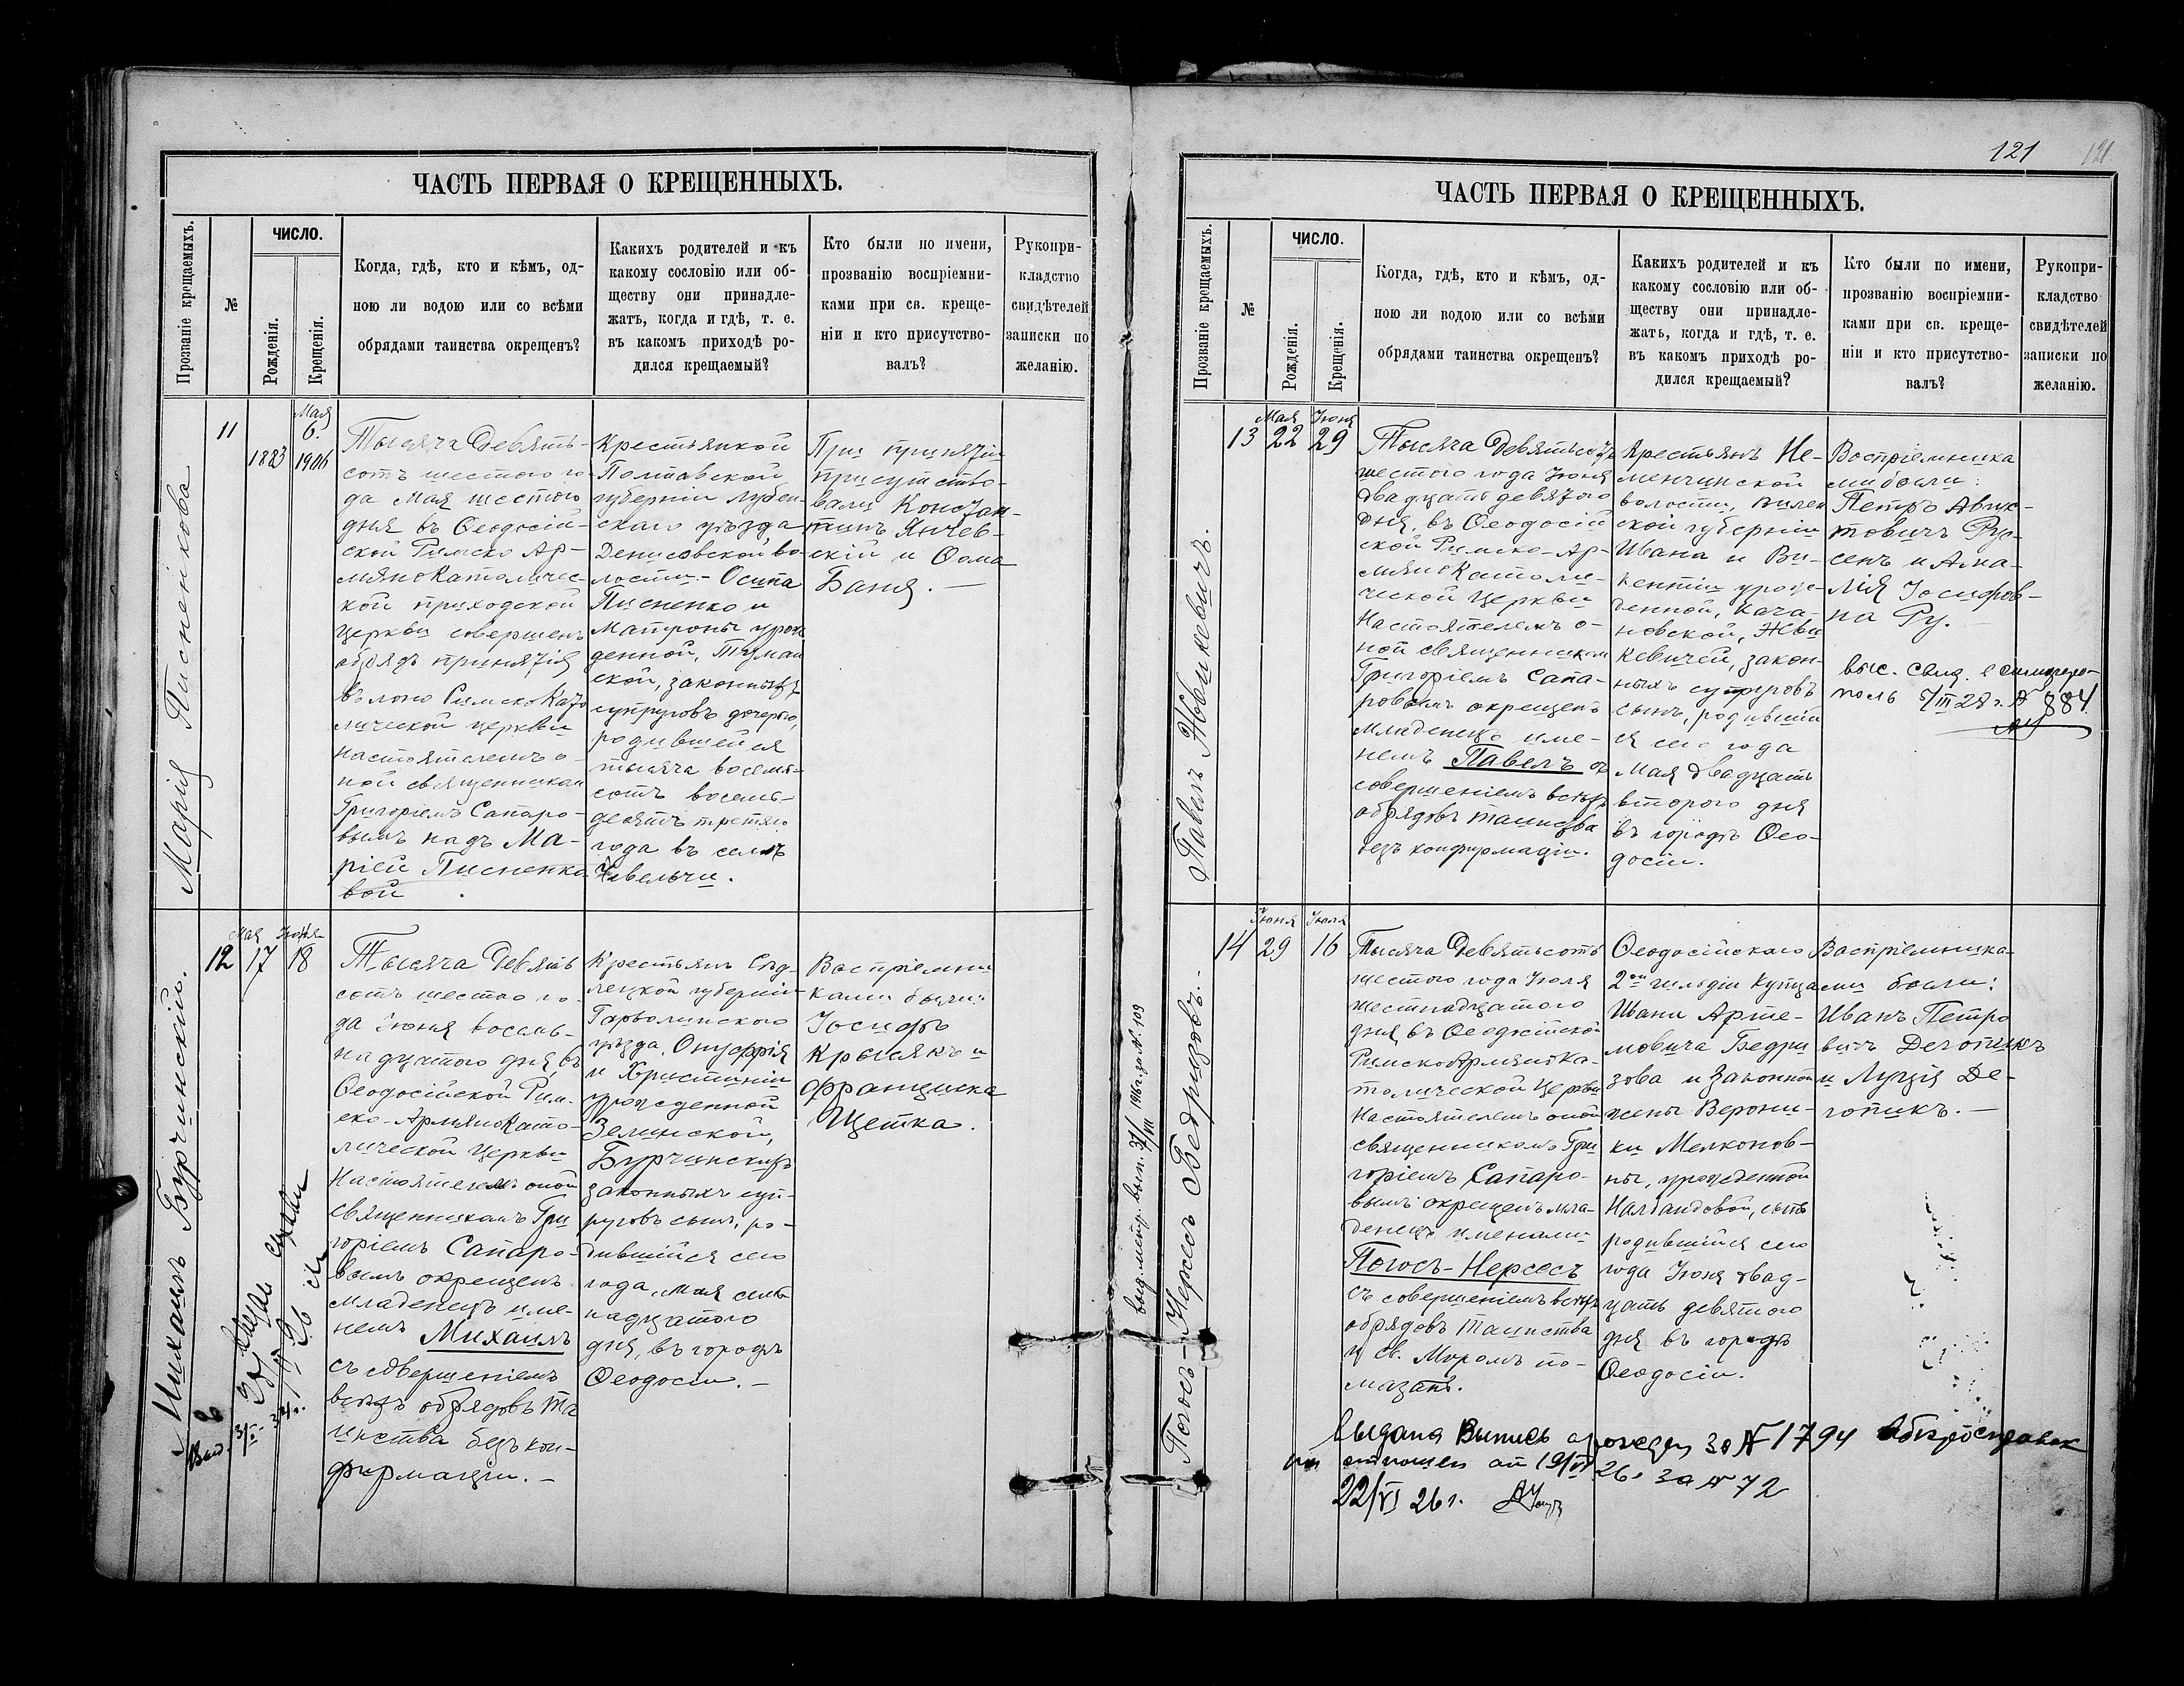 ЧАСТЬ ПЕРВАЯ О КРЕЩЕННЫХЪ.
Прозваніе крещаемыхъ.
№
ЧИСЛО.
Рожденія.
Крещенія.
Когда, гдѣ, кто и кѣмъ, од-
ною ли водою или со всѣми
обрядами таинства окрещенъ?
Какихъ родителей и къ
какому сословію или об-
ществу они принадле-
жатъ, когда и гдѣ, т. е.
въ какомъ приходѣ ро-
дился крещаемый?
Кто были по имени,
прозванію воспріемни-
ками при св. креще-
ніи и кто присутство-
валъ?
Рукопри-
кладство
свидѣтелей
записки по
желанію.
Марія Писненкова
11
1883
Мая
6.
1906
Тысяча Девять-
сотъ шестого го-
да Мая шестого
дня въ Ѳеодосій-
ской Римско Ар-
мяноКатоличес-
кой приходской
церкви совершенъ
обрядъ принятія
въ лоно РимскоКато
лической церкви
Настоятелемъ о-
ной священникомъ
Григоріемъ Сапаро-
вымъ надъ Ма-
ріей Писненко
вой
Крестьянкой
Полтавской
губерніи Лубен-
скаго уѣзда
Денисовской во-
лости.- Осипа
Писненко и
Матроны урож
денной, Туман
ской, законныхъ
супруговъ дочерью,
родившейся
тысяча восемь-
сотъ восемь-
десятъ третьяго
года въ селѣ
При принятіи
присутство-
вали Констан-
тинъ Янчев-
скій и Ѳома
Баня. —
Михаилъ Бурчинскій.
12
Мая
17
Іюня
18
Тысяча Девять
сотъ шестого го-
да Іюня восем-
надцатого дня, въ
Ѳеодосійской Рим-
ско-АрмяноКато-
лической Церкви
Настоятелемъ оной
священникомъ Гри
горіемъ Сапаро-
вымъ окрещенъ
младенецъ име-
немъ Михаилъ
съ совершеніемъ
всѣхъ обрядовъ Та
инства безъ кон-
фирмаціи. —
Крестьянъ Сѣд-
лецкой губерніи
Гарволинского
уѣзда, Онуфрія
и Христины
урожденной
Зелинской,
Бурчинскихъ
законныхъ суп-
руговъ сынъ, ро-
дившійся сего
года, Мая сем-
надцатого
дня, въ городѣ
Ѳеодосіи. —
Воспріемни
ками были:
Іосифъ
Крысякъ и
Франциска
Щетка.
121
121
ЧАСТЬ ПЕРВАЯ О КРЕЩЕННЫХЪ.
Прозваніе крещаемыхъ.
№
ЧИСЛО.
Рожденія.
Крещенія.
Когда, гдѣ, кто и кѣмъ, од-
ною ли водою или со всѣми
обрядами таинства окрещенъ?
Какихъ родителей и къ
какому сословію или об-
ществу они принадле-
жатъ, когда и гдѣ, т. е.
въ какомъ приходѣ ро-
дился крещаемый?
Кто были по имени,
прозванію воспріемни-
ками при св. креще-
ніи и кто присутство-
валъ?
Рукопри-
кладство
свидѣтелей
записки по
желанію.
13
Мая
22
Іюня
29
Тысяча Девятьсотъ
шестого года Іюня
двадцать девятого
дня, въ Ѳеодосій
ской Римско-Ар-
мяноКатоли-
ческой Церкви
Настоятелемъ о-
ной священникомъ
Григоріемъ Сапа-
ровымъ окрещенъ
младенецъ име-
немъ Павелъ съ
совершеніемъ всѣхъ
обрядовъ таинства
безъ конфирмаціи.
Крестьянъ Не-
менчинской
волости, Вилен
ской губерніи
Ивана и Ви-
кентіи урож-
денной, Кача-
новской,
закон-
ныхъ супруговъ
сынъ, родившій
ся сего года
Мая двадцать
второго дня
въ городѣ Ѳео-
досіи.
Воспріемника
ми были:
Петръ Авик-
товичъ Рус-
сенъ и Ама-
лія Іосифов-
на Ру.
выс. свид. в симферо-
поль 7/III 28 г. № 884
Погосъ-Нерсесъ Бедризовъ.
14
Іюня
29
Іюля
16
Тысяча Девятьсотъ
шестого года Іюля
шестнадцатого
дня въ Ѳеодосійской
РимскоАрмяноКа-
толической Церкви
Настоятелемъ оной
священникомъ Гри
горіемъ Сапаро-
вымъ окрещенъ мла-
денецъ именами
Погосъ-Нерсесъ
съ совершеніемъ всѣхъ
обрядовъ Таинства
и св. Муромъ по-
мазанъ.
Ѳеодосійского
2ой гильдіи Купца
Ивана Арте-
мовича Бедри
зова и законной
жены Верони-
ки Мелконов-
ны, урожденной
Налбандовой, сынъ
родившійся сего
года Іюня двад-
цать девятого
дня въ городѣ
Ѳеодосіи.
Воспріемника-
ми были:
Иванъ Петро
вичъ Дегопикъ
и Луція Де-
гопикъ. —
Выдана Выпись о рожден за № 1794
отношен от 19/VI 26 за № 72
22/VI 26 г.